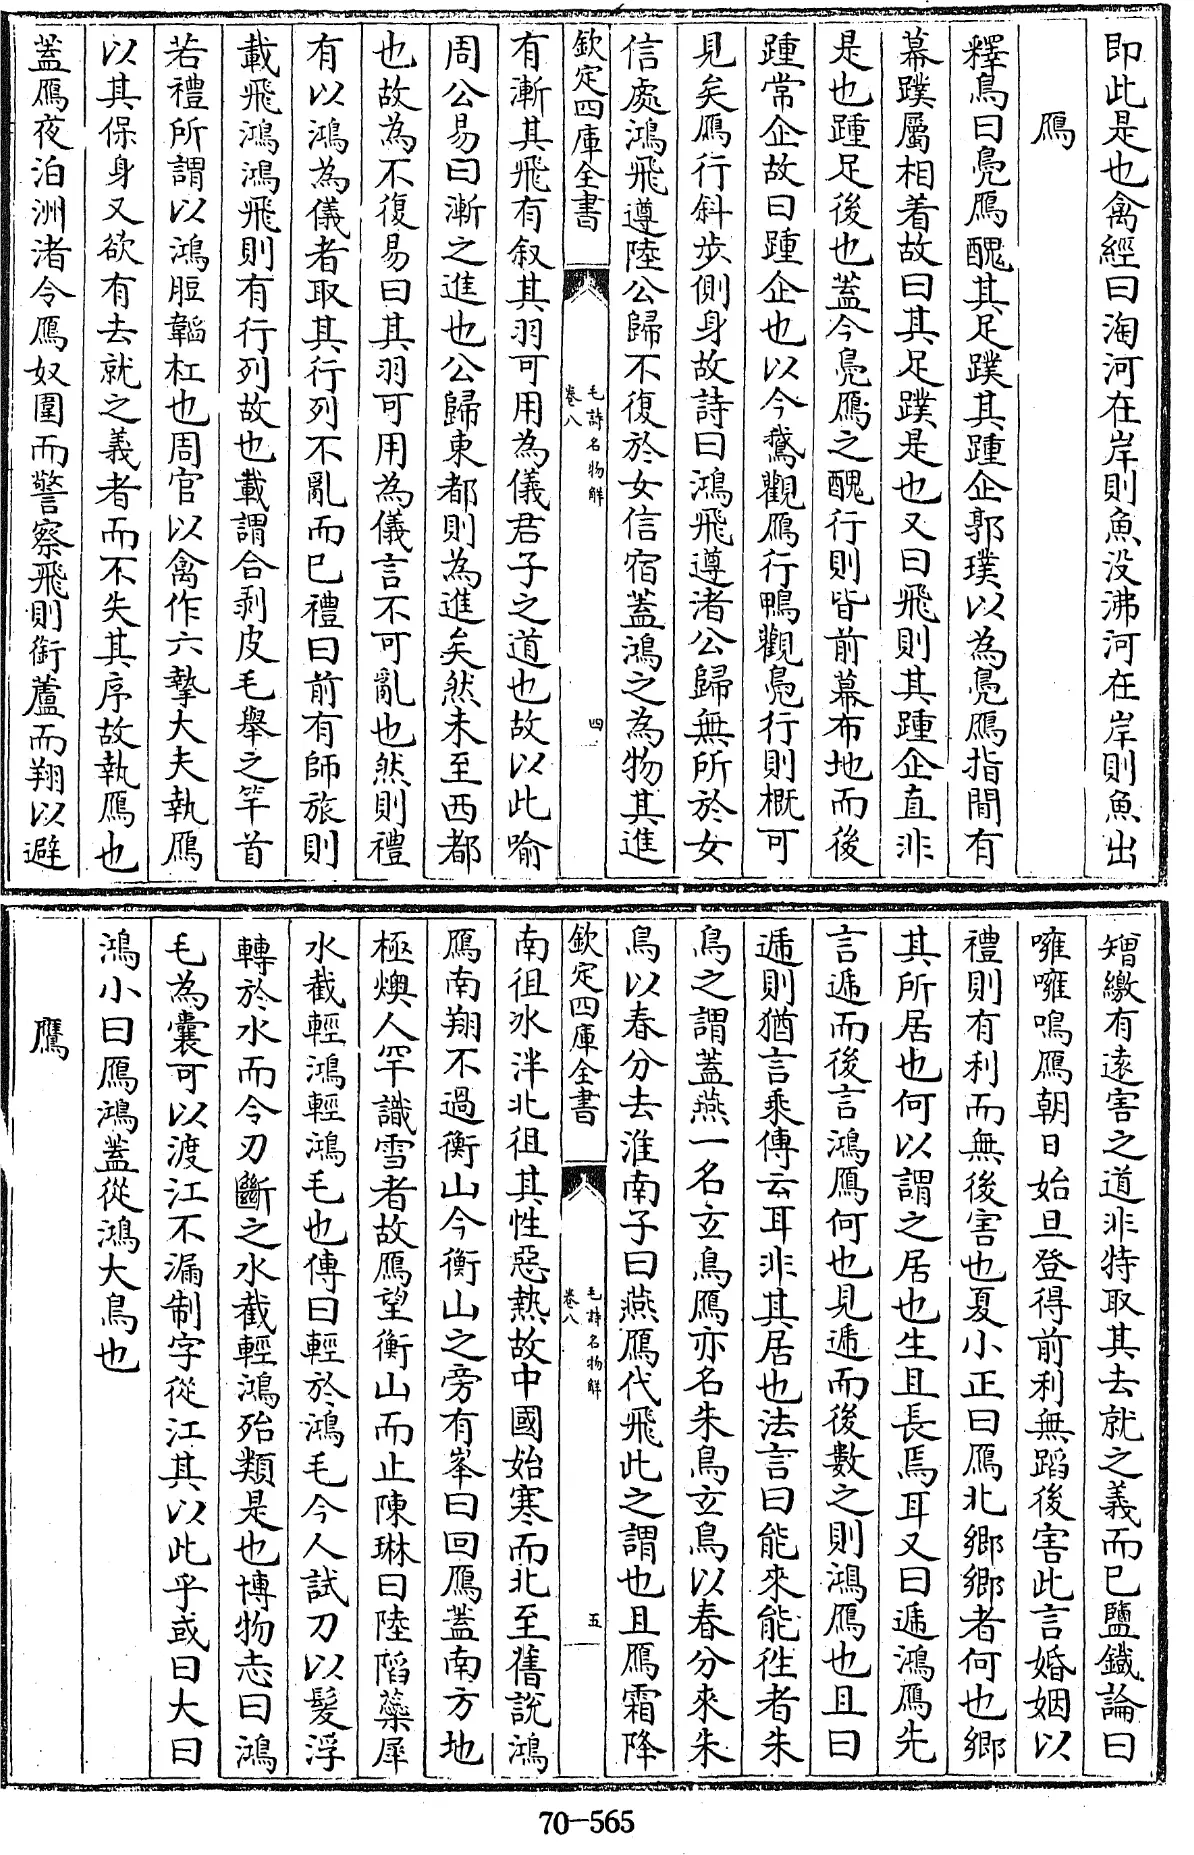 即此是也禽經曰淘河在岸則魚没沸河在岸則魚出
鴈
釋鳥曰鳧鴈醜其足蹼其踵企郭璞以為鳧鴈指間有
幕蹼屬相着故曰其足蹼是也又曰飛則其踵企直非
是也踵足後也蓋今鳧鴈之醜行則皆前幕布地而後
踵常企故曰踵企也以今鵞觀鴈行鴨觀鳧行則概可
見矣鴈行斜步側身故詩曰鴻飛遵渚公歸無所於女
信處鴻飛遵陸公歸不復於女信宿蓋鴻之為物其進
欽定四庫全書
毛詩名物解
卷八
四
有漸其飛有叙其羽可用為儀君子之道也故以此喻
周公易曰漸之進也公歸東都則為進矣然未至西都
也故為不復易曰其羽可用為儀言不可亂也然則禮
有以鴻為儀者取其行列不亂而已禮曰前有師旅則
載飛鴻鴻飛則有行列故也載謂合剥皮毛舉之竿首
若禮所謂以鴻脰韜杠也周官以禽作六摯大夫執鴈
以其保身又欲有去就之義者而不失其序故執鴈也
蓋鴈夜泊洲渚令鴈奴圍而警察飛則銜蘆而翔以避
矰繳有遠害之道非特取其去就之義而已鹽鐵論曰
噰噰鳴鴈朝日始旦登得前利無蹈後害此言婚姻以
禮則有利而無後害也夏小正曰鴈北鄉鄉者何也鄉
其所居也何以謂之居也生且長焉耳又曰遰鴻鴈先
言遰而後言鴻鴈何也見遰而後數之則鴻鴈也且曰
遰則猶言乘傳云耳非其居也法言曰能來能徃者朱
鳥之謂蓋燕一名玄鳥鴈亦名朱鳥玄鳥以春分來朱
鳥以春分去淮南子曰燕鴈代飛此之謂也且鴈霜降
欽定四庫全書
毛詩名物解
卷八
五
南徂氷泮北徂其性惡熱故中國始寒而北至舊說鴻
鴈南翔不過衡山今衡山之旁有峯曰回鴈蓋南方地
極燠人罕識雪者故鴈望衡山而止陳琳曰陸䧟蘂犀
水截輕鴻輕鴻毛也傳曰輕於鴻毛今人試刀以髮浮
轉於水而令刃斷之水截輕鴻殆類是也博物志曰鴻
毛為囊可以渡江不漏制字從江其以此乎或曰大曰
鴻小曰鴈鴻蓋從鴻大鳥也
鷹
70-565